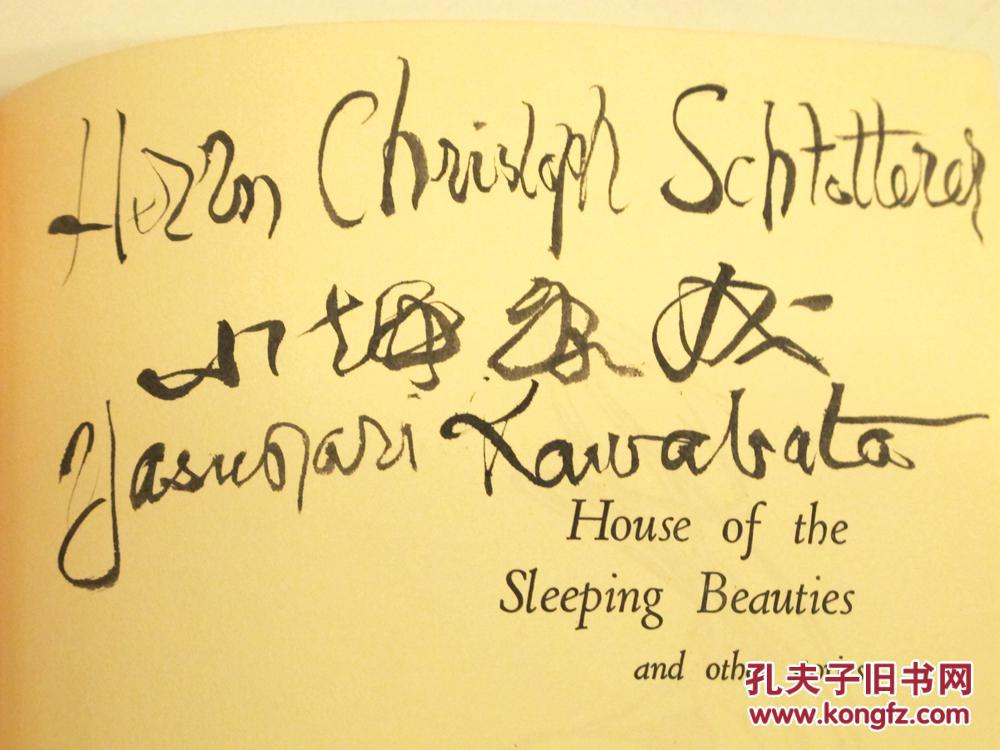 Herrn Christoph Schlotterer
川端康成
Yasunari Kawabata
House of the
Sleeping Beauties
and other stories
孔夫子旧书网
www.kongfz.com